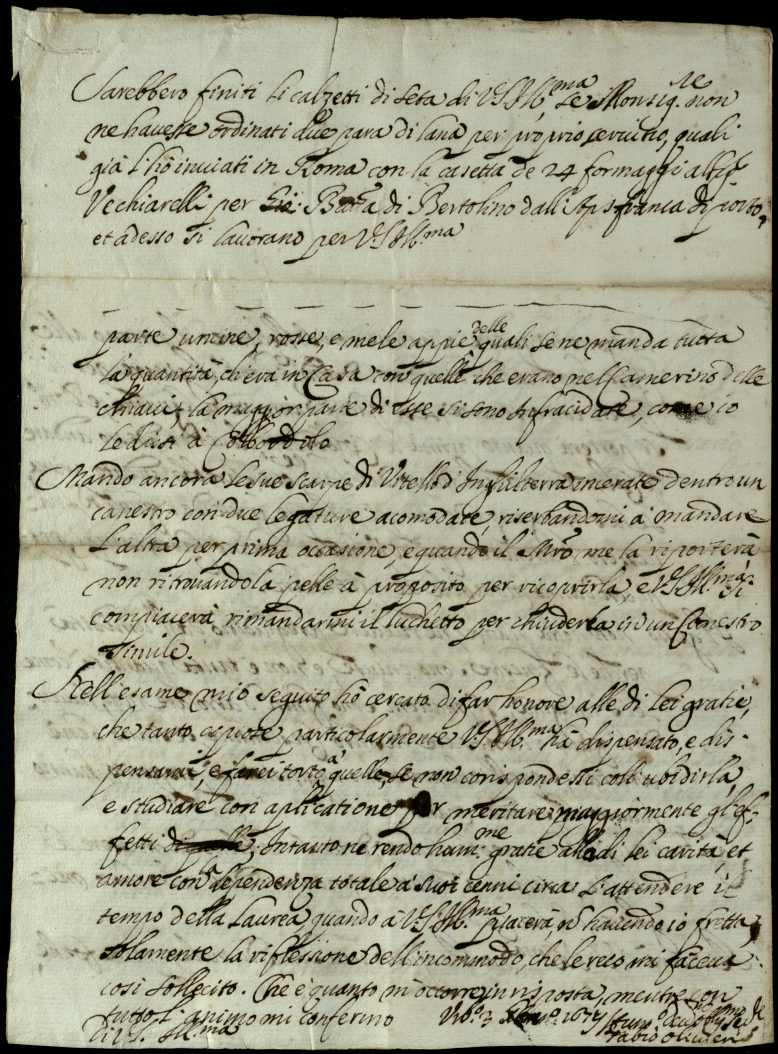 Sarebbero finiti li calzetti di seta di VS Ill.ma se Monsig.re non
ne havesse ordinati due para di lana per proprio servitio, quali
già l'hò inviati in Roma con la casetta de 24 formaggi al Sig.
Vechiarelli per Gio: Batta di Bertolino dall' franca di porto,
et adesso si lavorano per V.S. Ill.ma
parte uncine, rosse, e mele appie delle quali se ne manda tutta
la quantità, ch'era in Casa con quelle che erano nel Camerino delle
chiavi, la maggior parte di esse si sono infracidate, come io
le dissi à Colbordolo
Mando ancora le sue scarpe di Vitello d'Inghilterra incerate dentro un
canestro con due legature acomodate, riserbandomi à mandare
l'altra per prima occasione, e quando il Mro me la riporterà
non ritrovandola pelle à proposito per ricoprirla, e VS Ill.ma si
compiacerà rimandarmi il luchetto per chiuderla in un Canestro
simile.
Nell'esame mio seguito hò cercato di far honore alle di lei gratie,
che tanto particolarmente VS Ill.ma hà dispensato, e dis-
pensarà, e farei torto à quelle, se non corispondessi coll'ubidirla,
e studiare con aplicatione per meritare maggiormente gl'ef-
fetti di quelle; Intanto ne rendo hum.me gratie alla di lei carità, et
amore con dependenza totale a' suoi cenni circa l'attendere il
tempo della Laurea, quando à VS Ill.ma piacerà, nò havendo io fretta,
solamente la riflessione dell'incommodo, che le reco mi faceva
così sollecito. Che è quanto m'occorre in risposta, mentre con
tutto l'animo mi confermo
Di V.S. Ill.ma
Urb.o 3 1674
Fabio Olivieri